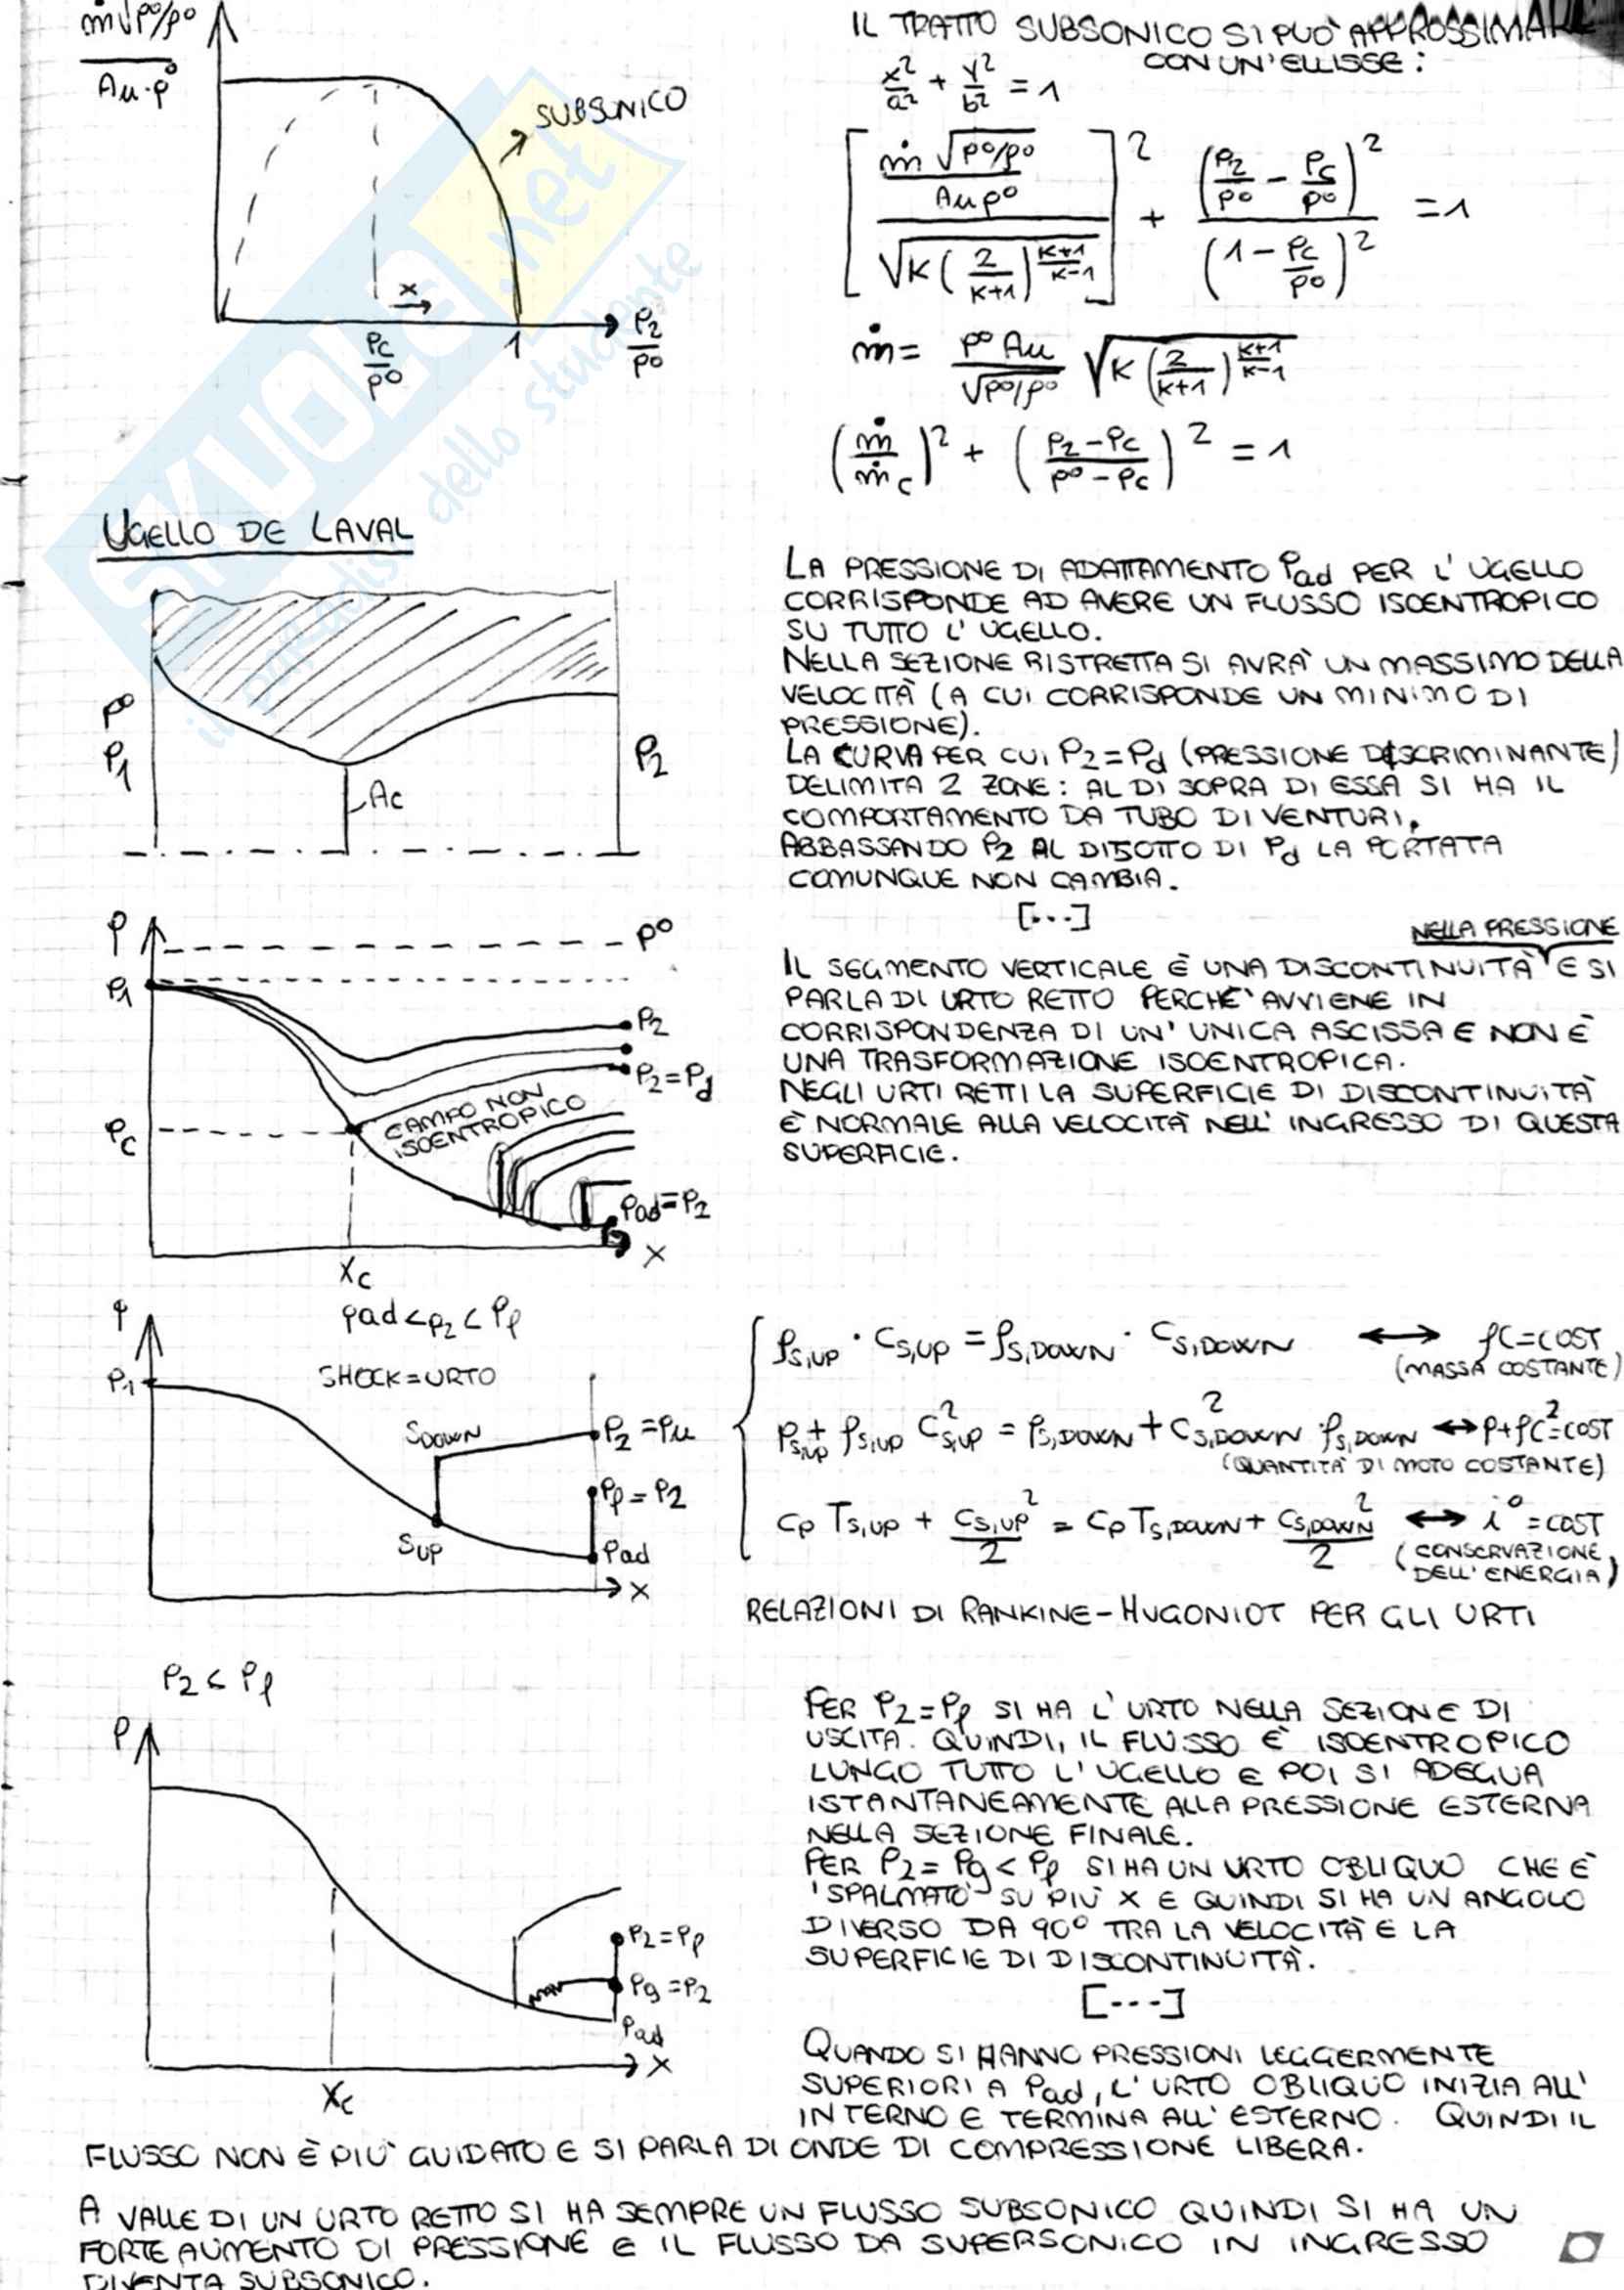 ṁ√p⁰/ρ⁰
Au·p⁰
SUBSONICO
x
Pc/p⁰
1
P2/p⁰
IL TRATTO SUBSONICO SI PUÒ APPROSSIMARE
CON UN'ELLISSE:
x²/a² + y²/b² = 1
[ (ṁ√p⁰/ρ⁰ / Au p⁰) / √K(2/K+1)^(K+1/K-1) ]² + (P2/p⁰ - Pc/p⁰)² / (1 - Pc/p⁰)² = 1
ṁ = p⁰ Au / √p⁰/ρ⁰ √K(2/K+1)^(K+1/K-1)
(ṁ/ṁc)² + (P2-Pc / p⁰-Pc)² = 1
UGELLO DE LAVAL
p⁰
P1
Ac
P2
LA PRESSIONE DI ADATTAMENTO Pad PER L'UGELLO
CORRISPONDE AD AVERE UN FLUSSO ISOENTROPICO
SU TUTTO L'UGELLO.
NELLA SEZIONE RISTRETTA SI AVRÀ UN MASSIMO DELLA
VELOCITÀ (A CUI CORRISPONDE UN MINIMO DI
PRESSIONE).
LA CURVA PER CUI P2=Pd (PRESSIONE DISCRIMINANTE)
DELIMITA 2 ZONE: AL DI SOPRA DI ESSA SI HA IL
COMPORTAMENTO DA TUBO DI VENTURI.
ABBASSANDO P2 AL DISOTTO DI Pd LA PORTATA
COMUNQUE NON CAMBIA.
[...]
NELLA PRESSIONE
IL SEGMENTO VERTICALE È UNA DISCONTINUITÀ E SI
PARLA DI URTO RETTO PERCHE' AVVIENE IN
CORRISPONDENZA DI UN'UNICA ASCISSA E NON È
UNA TRASFORMAZIONE ISOENTROPICA.
NEGLI URTI RETTI LA SUPERFICIE DI DISCONTINUITÀ
È NORMALE ALLA VELOCITÀ NELL'INGRESSO DI QUESTA
SUPERFICIE.
P
p⁰
P1
P2
P2=Pd
CAMPO NON
ISOENTROPICO
Pc
Pad=P2
x
Xc
Pad<P2<Pf
P
P1
SHOCK=URTO
SDOWN
P2=Pu
Pf=P2
SUP
Pad
x
ρs,UP · Cs,UP = ρs,DOWN · Cs,DOWN ↔ ρC=COST
(MASSA COSTANTE)
Ps,UP + ρs,UP C²s,UP = Ps,DOWN + C²s,DOWN ·ρs,DOWN ↔ P+ρC²=COST
(QUANTITÀ DI MOTO COSTANTE)
Cp Ts,UP + Cs,UP²/2 = Cp Ts,DOWN + Cs,DOWN²/2 ↔ i⁰=COST
(CONSERVAZIONE
DELL'ENERGIA)
RELAZIONI DI RANKINE-HUGONIOT PER GLI URTI
P2<Pf
P
P2=Pf
Pg=P2
Pad
x
Xc
PER P2=Pf SI HA L'URTO NELLA SEZIONE DI
USCITA. QUINDI, IL FLUSSO È ISOENTROPICO
LUNGO TUTTO L'UGELLO E POI SI ADEGUA
ISTANTANEAMENTE ALLA PRESSIONE ESTERNA
NELLA SEZIONE FINALE.
PER P2=Pg<Pf SI HA UN URTO OBLIQUO CHE È
'SPALMATO' SU PIÙ X E QUINDI SI HA UN ANGOLO
DIVERSO DA 90° TRA LA VELOCITÀ E LA
SUPERFICIE DI DISCONTINUITÀ.
[---]
QUANDO SI HANNO PRESSIONI LEGGERMENTE
SUPERIORI A Pad, L'URTO OBLIQUO INIZIA ALL'
INTERNO E TERMINA ALL'ESTERNO. QUINDI IL
FLUSSO NON È PIÙ GUIDATO E SI PARLA DI ONDE DI COMPRESSIONE LIBERA.
A VALLE DI UN URTO RETTO SI HA SEMPRE UN FLUSSO SUBSONICO QUINDI SI HA UN
FORTE AUMENTO DI PRESSIONE E IL FLUSSO DA SUPERSONICO IN INGRESSO
DIVENTA SUBSONICO.
SKUOLA.net
il paradiso dello studente